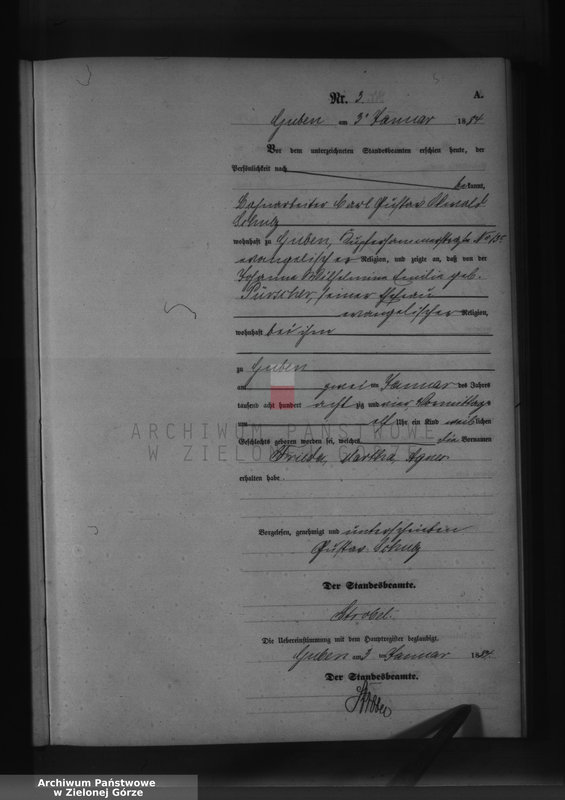 A.
Nr. 3.
Guben am 3t Januar 1884
Vor dem unterzeichneten Standesbeamten erschien heute, der
Persönlichkeit nach
bekannt,
Carl Gustav Oswald
Schulz
wohnhaft zu Guben,
evangelischer Religion, und zeigte an, daß von der
Johanna Wilhelmine Emilie geb.
seiner Ehefrau
evangelischer Religion,
wohnhaft bei ihm
zu Guben
am zwei ten Januar des Jahres
tausend acht hundert acht zig und vier, Vormittags
um elf Uhr ein Kind weiblichen
Geschlechts geboren worden sei, welches die Vornamen
Frieda, Martha Agnes
erhalten habe.
ARCHIWUM PAŃSTWOWE
W ZIELONEJ GÓRZE
Vorgelesen, genehmigt und unterschrieben
Gustav Schulz
Der Standesbeamte.
Strobel.
Die Uebereinstimmung mit dem Hauptregister beglaubigt.
Guben am 3 ten Januar 1884.
Der Standesbeamte.
Archiwum Państwowe
w Zielonej Górze